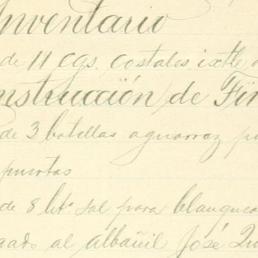 Inventario
de 11 cgs. costales ixtle
nstrucción de Fin
de 3 botellas aguarraz p
puertas
de 8 lts. sal para blanque
gado al albañil José